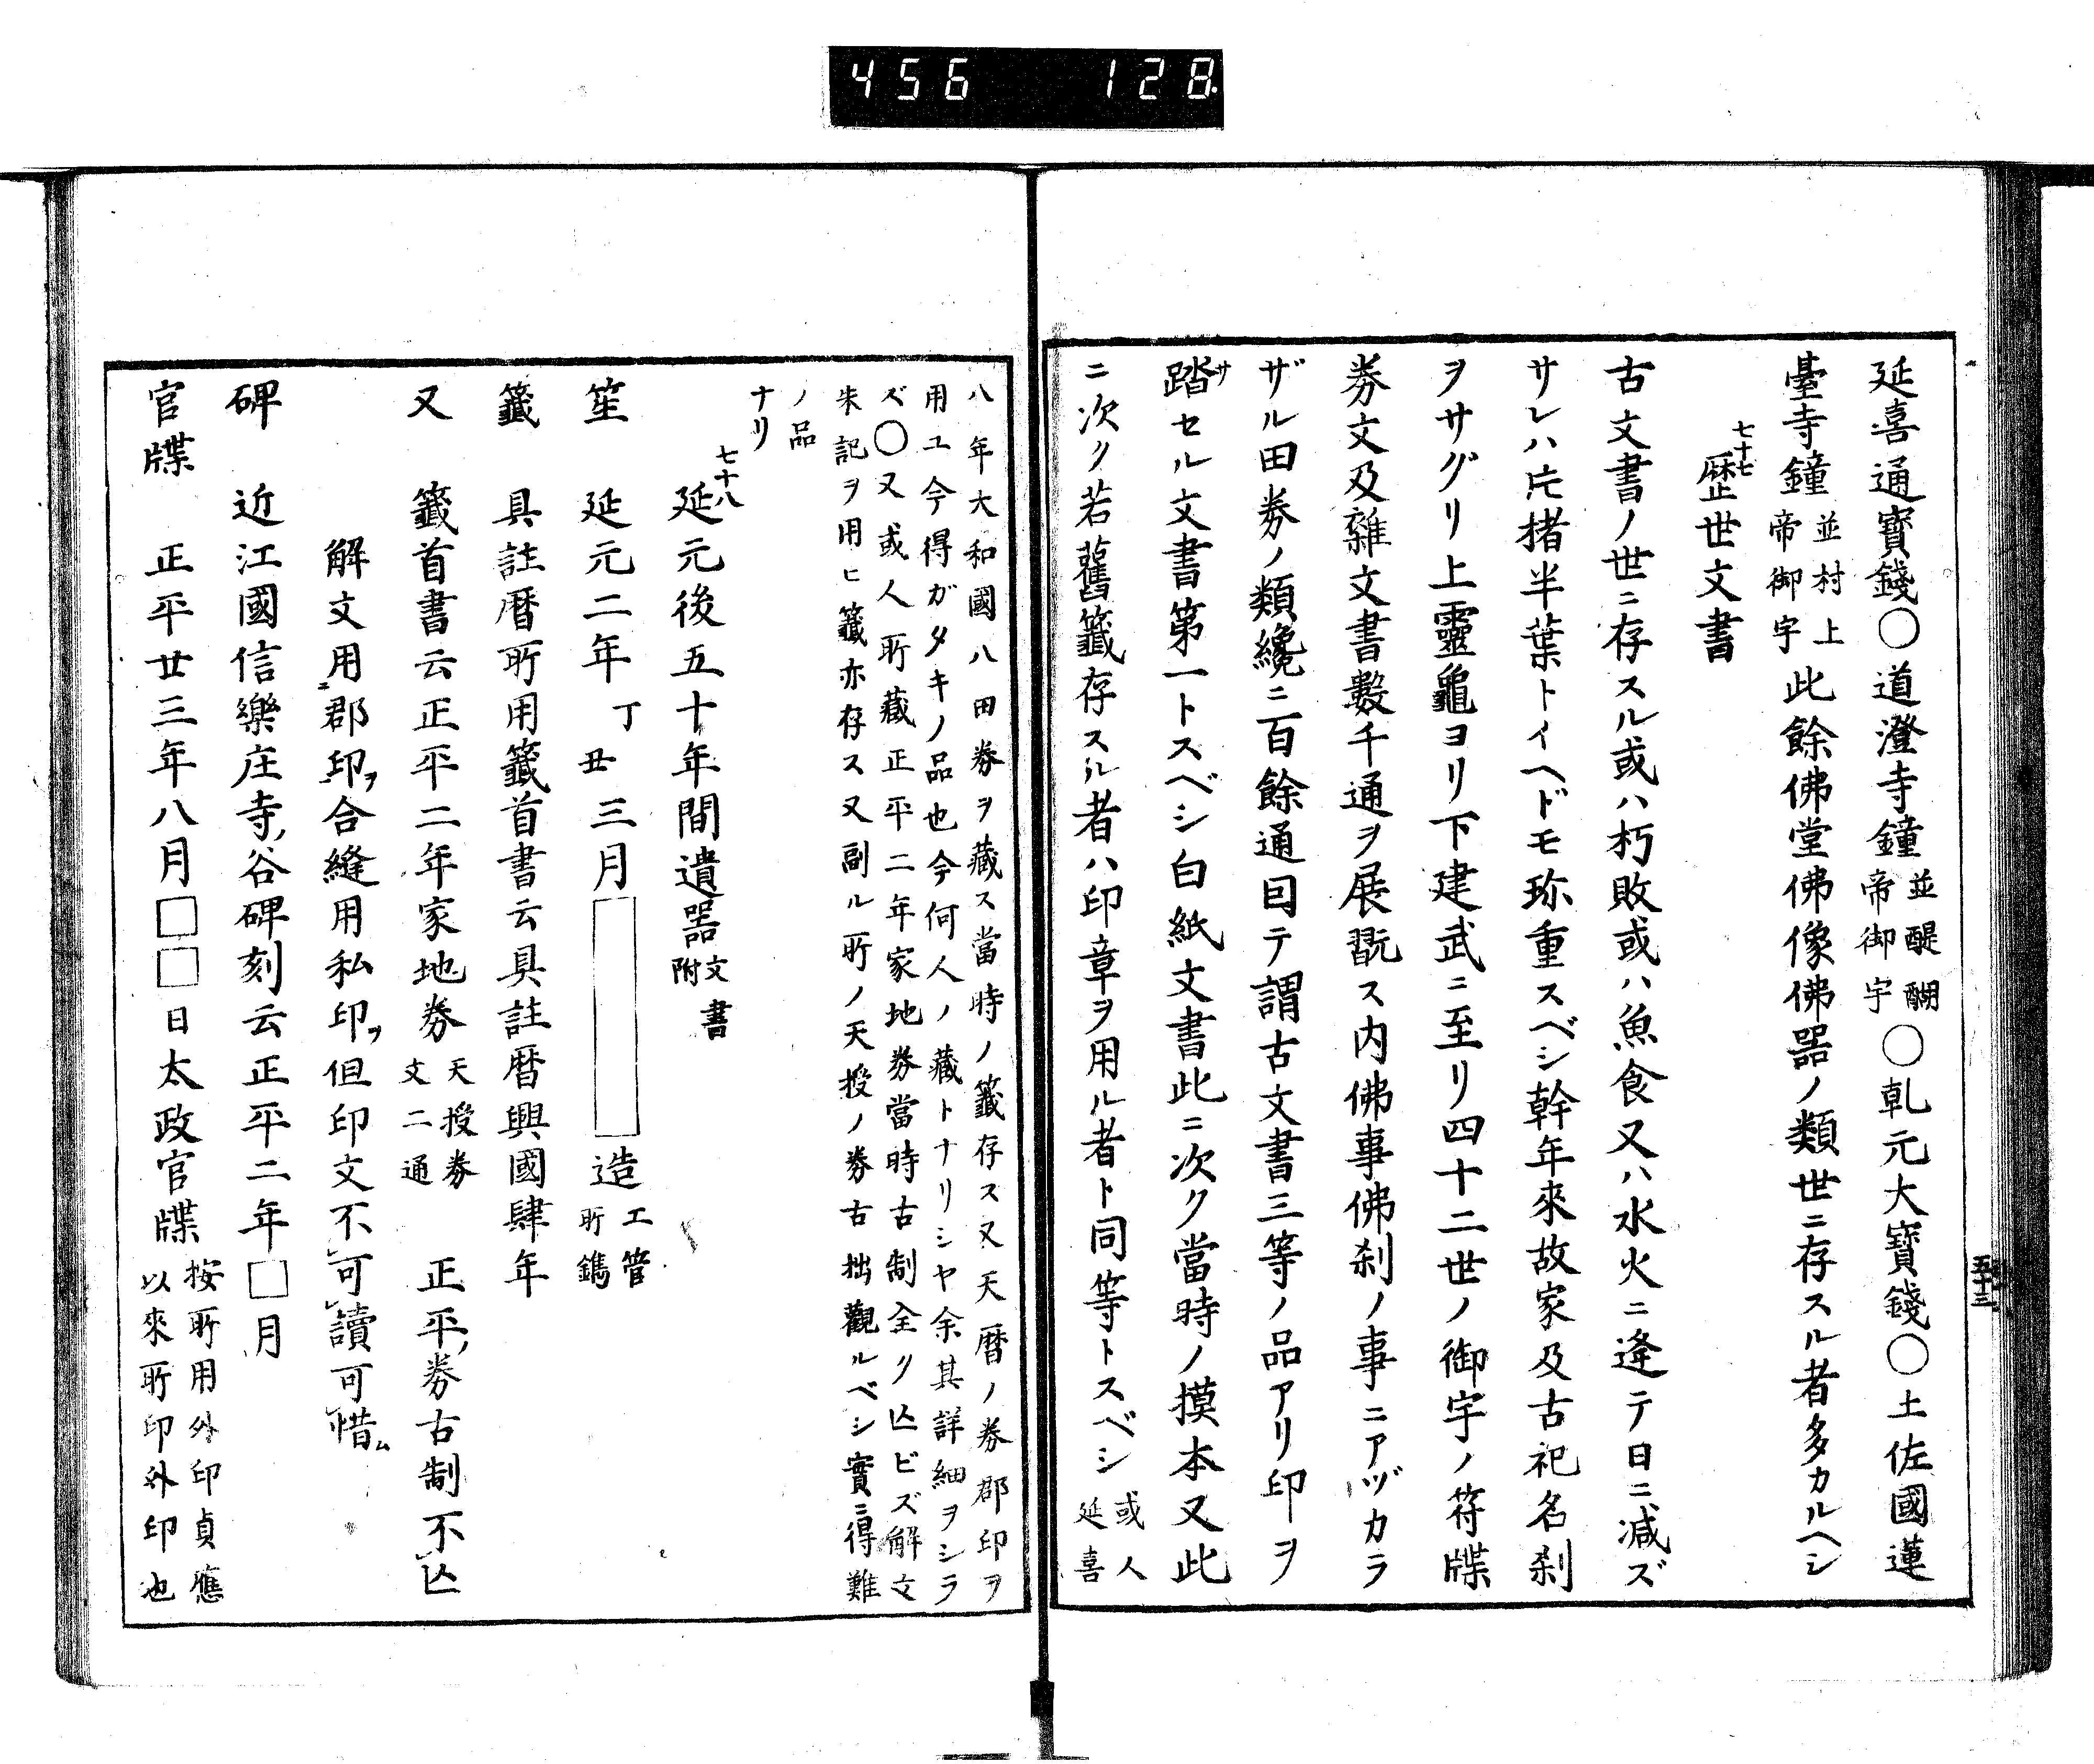 456 128
延喜通寳錢〇道澄寺鐘並醍醐帝御宇〇乹元大寳錢〇土佐國蓮
臺寺鐘並村上帝御宇此餘佛堂佛像佛器ノ類世ニ存スル者多カルヘシ
七十七
歴世文書
古文書ノ世ニ存スル或ハ朽敗或ハ魚食又ハ水火ニ逢テ日ニ減ズ
サレハ片楮半葉トイヘドモ珎重スベシ幹年來故家及古祀名刹
ヲサグリ上靈龜ヨリ下建武ニ至リ四十二世ノ御宇ノ符牒
券文及雜文書數千通ヲ展翫ス内佛事佛刹ノ事ニアヅカラ
ザル田券ノ類纔ニ百餘通囙テ謂古文書三等ノ品アリ印ヲ
踏サセル文書第一トスベシ白紙文書此ニ次ク當時ノ摸本又此
ニ次ク若舊籤存スル者ハ印章ヲ用ル者ト同等トスベシ或人延喜
五十三
八年大和國八田券ヲ藏ス當時ノ籤存ス又天暦ノ券郡印ヲ
用ユ今得ガタキノ品也今何人ノ藏トナリシヤ余其詳細ヲシラ
ズ〇又或人所藏正平二年家地券當時古制全ク亾ビズ解文
朱記ヲ用ヒ籤亦存ス又副ル所ノ天授ノ券古拙觀ルベシ實ニ得難
ノ品
ナリ
七十八
延元後五十年間遺器文書附
笙 延元二年丁丑三月 造工管所鐫
籤 具註暦所用籤首書云具註暦興國肆年
又 籤首書云正平二年家地券天授券文二通 正平ノ券古制不亾
解文用ニ郡印ヲ合縫用私印ヲ但印文不可讀可惜ム
碑 近江國信樂庄寺ノ谷碑刻云正平二年□月
官牒 正平廿三年八月□□日太政官牒按所用外印貞應以來所印外印也